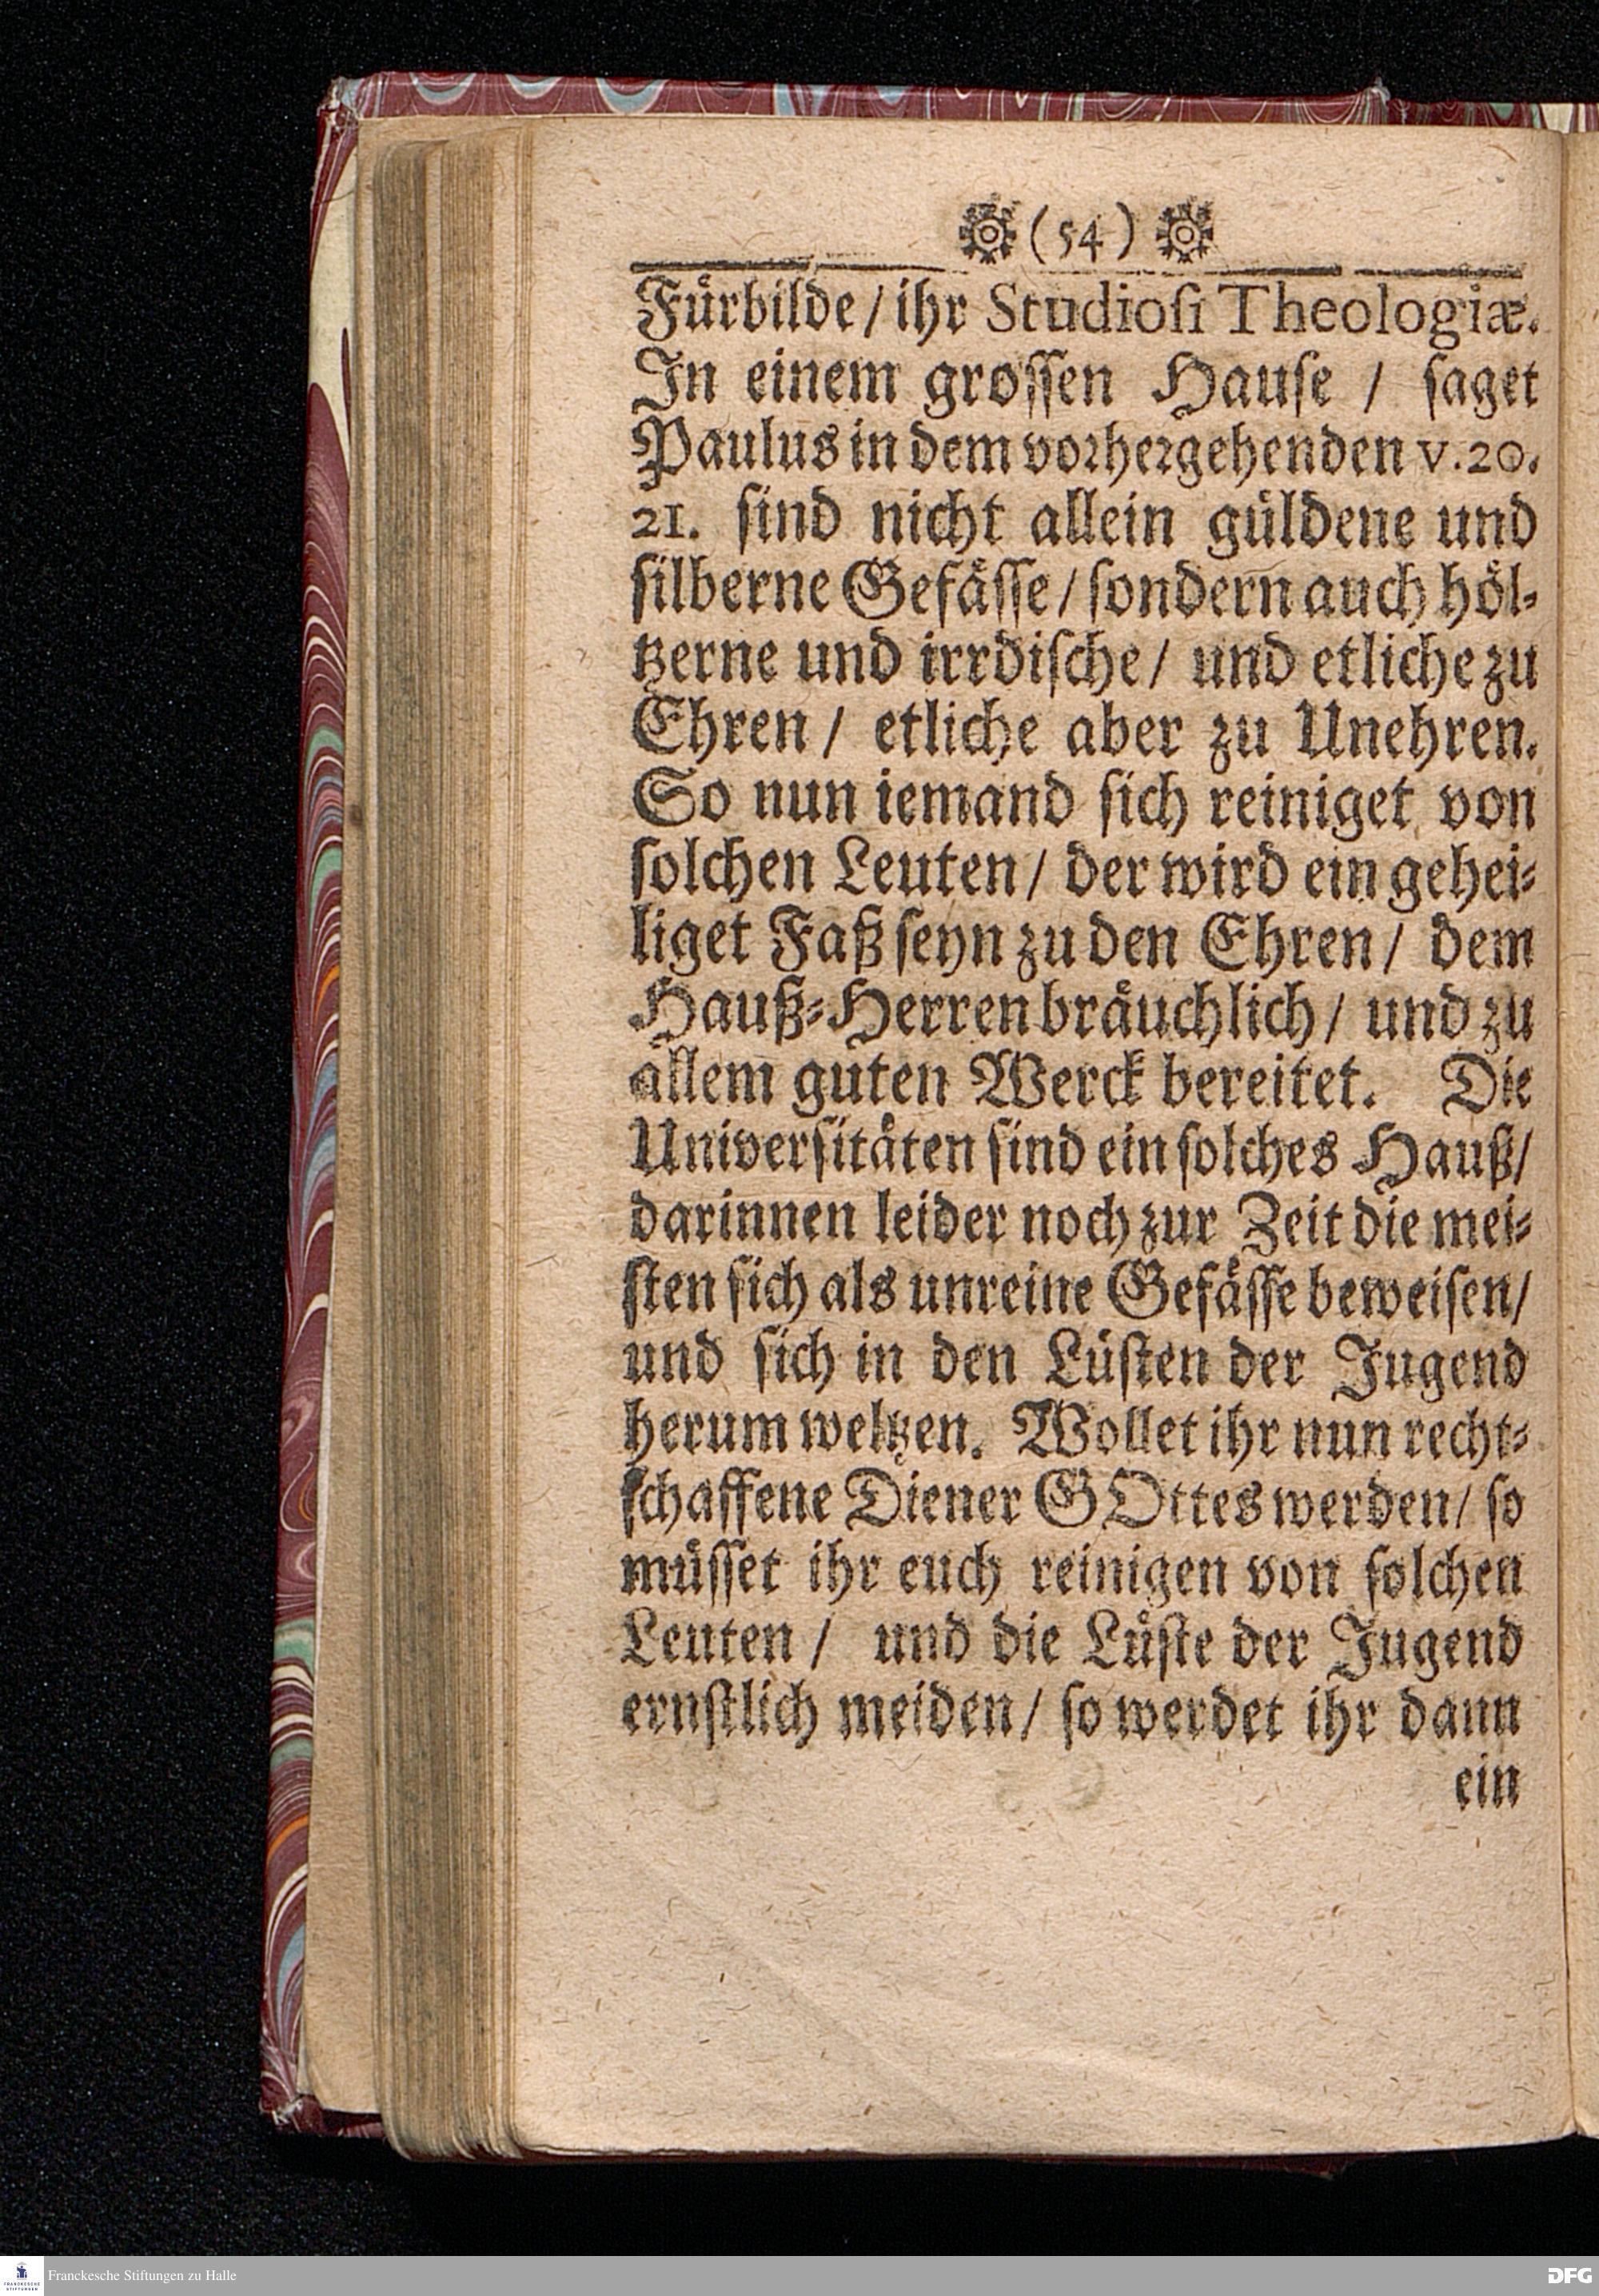 (54)
Fürbilde / ihr Studiosi Theologiæ.
In einem grossen Hause / saget
Paulus in dem vorhergehenden v. 20.
21. sind nicht allein güldene und
silberne Gefässe / sondern auch höl-
tzerne und irrdische / und etliche zu
Ehren / etliche aber zu Unehren.
So nun iemand sich reiniget von
solchen Leuten / der wird ein gehei-
liget Faß seyn zu den Ehren / dem
Hauß-Herren bräuchlich / und zu
allem guten Werck bereitet. Die
Universitäten sind ein solches Hauß /
darinnen leider noch zur Zeit die mei-
sten sich als unreine Gefässe beweisen /
und sich in den Lüsten der Jugend
herum weltzen. Wollet ihr nun recht-
schaffene Diener GOttes werden / so
müsset ihr euch reinigen von solchen
Leuten / und die Lüste der Jugend
ernstlich meiden / so werdet ihr dann
ein
FRANCKESCHE STIFTUNGEN
Franckesche Stiftungen zu Halle
DFG